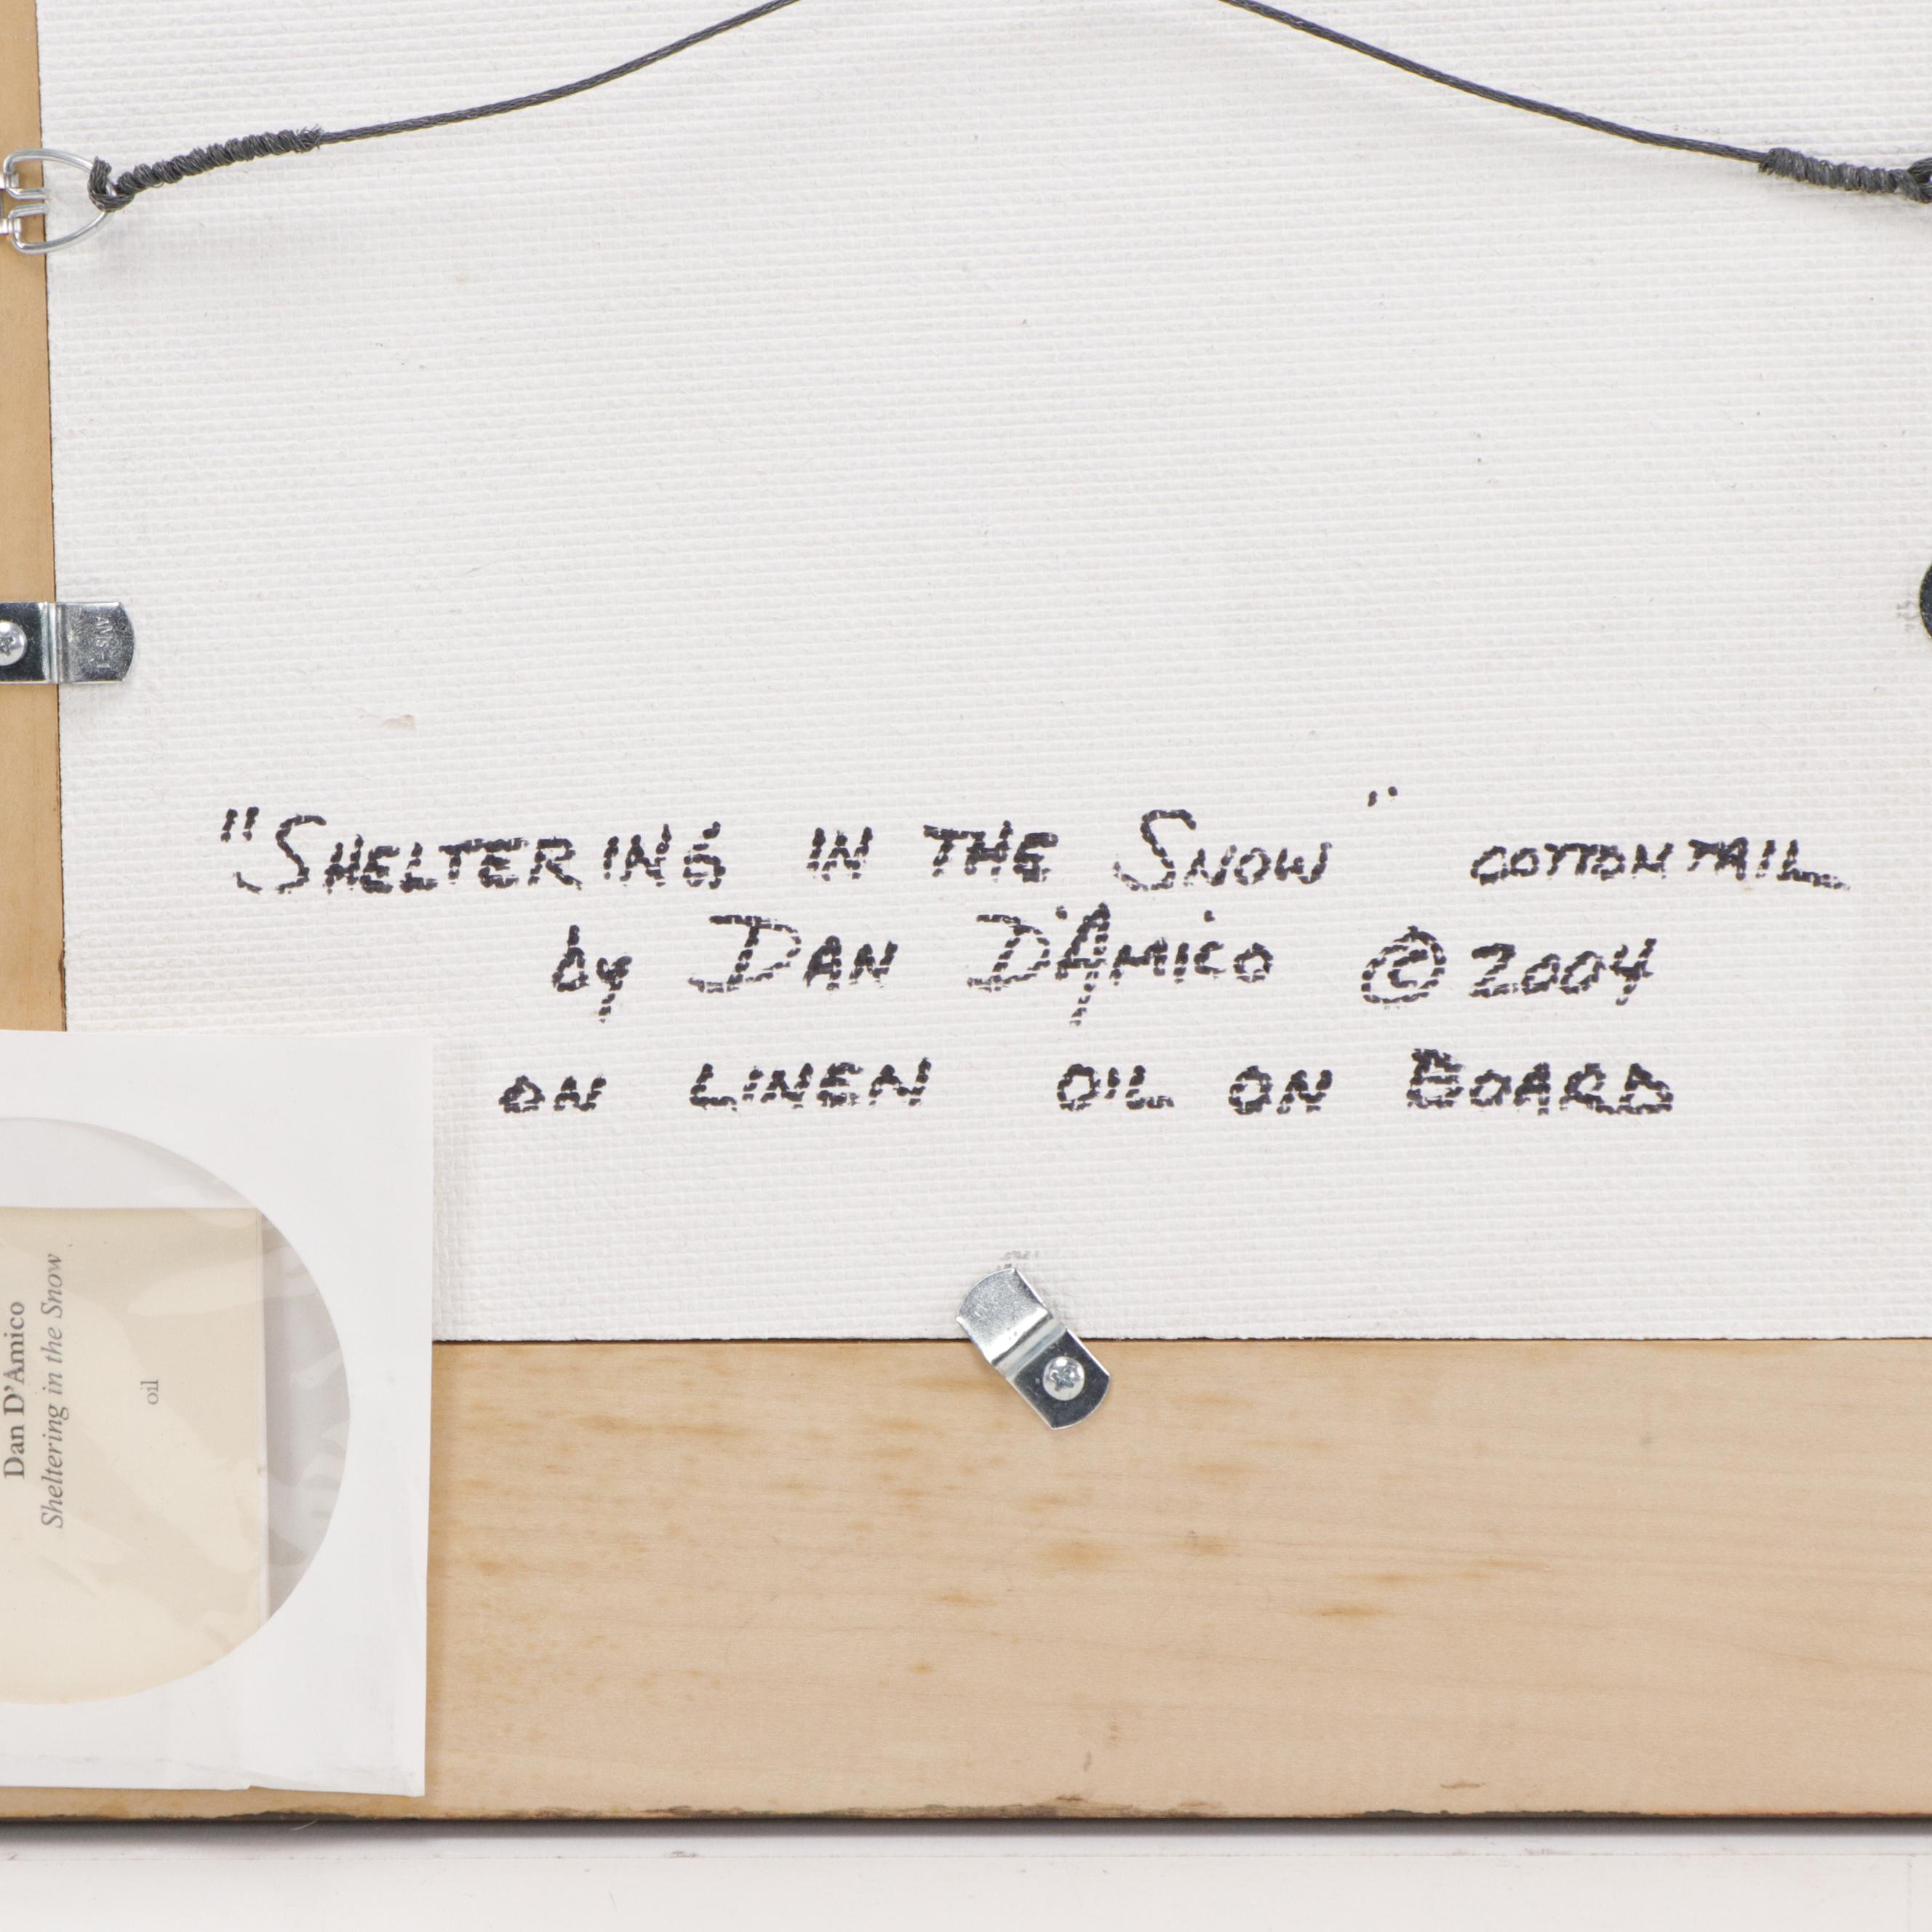 "SHELTERING IN THE SNOW" COTTONTAIL
by DAN D'AMICO © 2004
ON LINEN OIL ON BOARD
Dan D'Amico
Sheltering in the Snow
oil